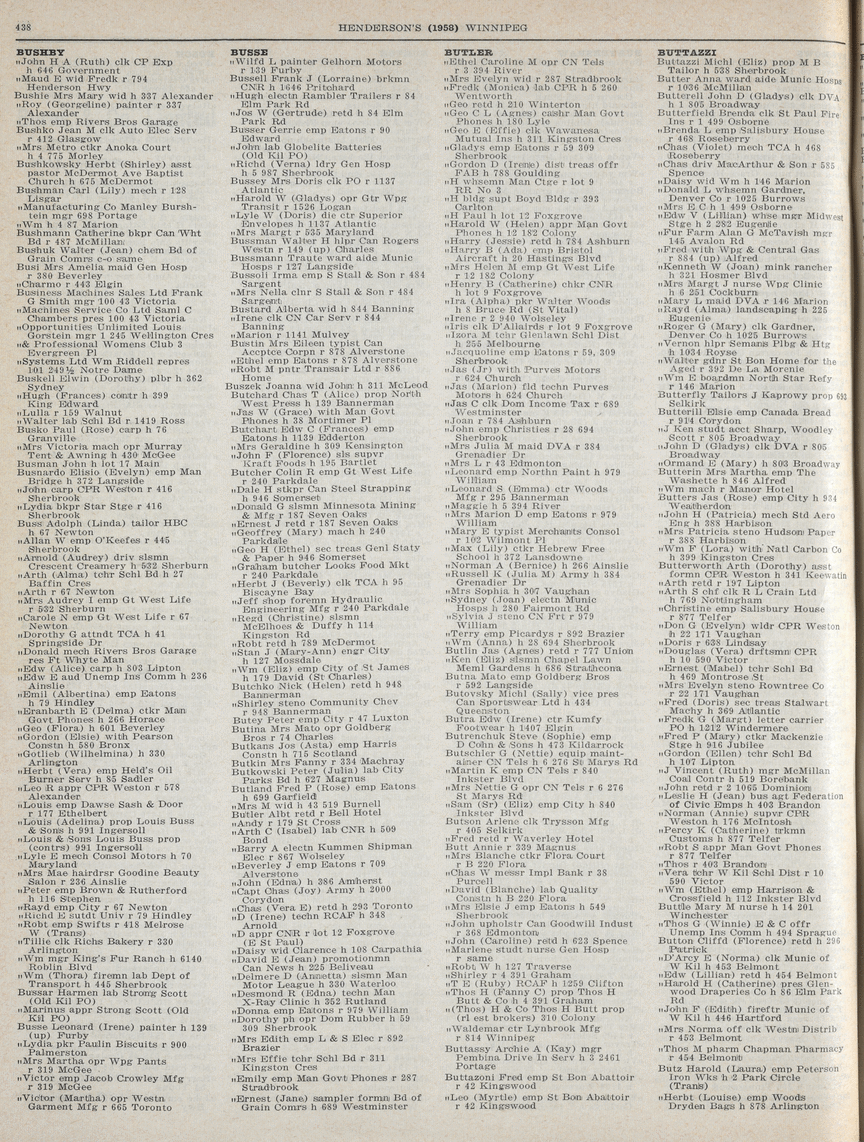 438
HENDERSON'S (1958) WINNIPEG
BUSHBY
„John H A (Ruth) clk CP Exp
h 646 Government
„Maud E wid Fredk r 794
Henderson Hwy
Bushie Mrs Mary wid h 337 Alexander
„Roy (Georgeline) painter r 337
Alexander
„Thos emp Rivers Bros Garage
Bushko Jean M clk Auto Elec Serv
r 412 Glasgow
„Mrs Metro ctkr Anoka Court
h 4 775 Morley
Bushkowsky Herbt (Shirley) asst
pastor McDermot Ave Baptist
Church h 675 McDermot
Bushman Carl (Lily) mech r 128
Lisgar
„Manufacturing Co Manley Bursh-
tein mgr 698 Portage
„Wm h 4 87 Marion
Bushmann Catherine bkpr Can Wht
Bd r 487 McMillan
Bushuk Walter (Jean) chem Bd of
Grain Comrs c-o same
Busi Mrs Amelia maid Gen Hosp
r 380 Beverley
„Charmo r 443 Elgin
Business Machines Sales Ltd Frank
G Smith mgr 100 43 Victoria
„Machines Service Co Ltd Saml C
Chambers pres 100 43 Victoria
„Opportunities Unlimited Louis
Gorstein mgr 1 245 Wellington Cres
„& Professional Womens Club 3
Evergreen Pl
„Systems Ltd Wm Riddell repres
101 249½ Notre Dame
Buskell Elwin (Dorothy) plbr h 362
Sydney
„Hugh (Frances) contr h 399
King Edward
„Lulla r 159 Walnut
„Walter lab Schl Bd r 1419 Ross
Busko Paul (Rose) carp h 76
Granville
„Mrs Victoria mach opr Murray
Tent & Awning h 430 McGee
Busman John h lot 17 Main
Busnardo Elisio (Evelyn) emp Man
Bridge h 372 Langside
„John carp CPR Weston r 416
Sherbrook
„Lydia bkpr Star Stge r 416
Sherbrook
Buss Adolph (Linda) tailor HBC
h 67 Newton
„Allan W emp O'Keefes r 445
Sherbrook
„Arnold (Audrey) driv slsmn
Crescent Creamery h 532 Sherburn
„Arth (Alma) tchr Schl Bd h 27
Baffin Cres
„Arth r 67 Newton
„Mrs Audrey I emp Gt West Life
r 532 Sherburn
„Carole N emp Gt West Life r 67
Newton
„Dorothy G attndt TCA h 41
Springside Dr
„Donald mech Rivers Bros Garage
res Ft Whyte Man
„Edw (Alice) carp h 803 Lipton
„Edw E aud Unemp Ins Comm h 236
Ainslie
„Emil (Albertina) emp Eatons
h 79 Hindley
„Eranbarth E (Delma) ctkr Man
Govt Phones h 266 Horace
„Geo (Flora) h 601 Beverley
„Gordon (Elsie) with Pearson
Constn h 580 Bronx
„Gotlieb (Wilhelmina) h 330
Arlington
„Herbt (Vera) emp Held's Oil
Burner Serv h 85 Sadler
„Leo R appr CPR Weston r 578
Alexander
„Louis emp Dawse Sash & Door
r 177 Ethelbert
„Louis (Adelina) prop Louis Buss
& Sons h 991 Ingersoll
„Louis & Sons Louis Buss prop
(contrs) 991 Ingersoll
„Lyle E mech Consol Motors h 70
Maryland
„Mrs Mae hairdrsr Goodine Beauty
Salon r 236 Ainslie
„Peter emp Brown & Rutherford
h 116 Stephen
„Rayd emp City r 67 Newton
„Richd E sutdt Univ r 79 Hindley
„Robt emp Swifts r 418 Melrose
W (Trans)
„Tillie clk Richs Bakery r 330
Arlington
„Wm mgr King's Fur Ranch h 6140
Roblin Blvd
„Wm (Thora) firemn lab Dept of
Transport h 445 Sherbrook
Bussar Harmen lab Strong Scott
(Old Kil PO)
„Marinus appr Strong Scott (Old
Kil PO)
Busse Leonard (Irene) painter h 139
(up) Furby
„Lydia pkr Paulin Biscuits r 900
Palmerston
„Mrs Martha opr Wpg Pants
r 319 McGee
„Victor emp Jacob Crowley Mfg
r 319 McGee
„Victor (Martha) opr Westn
Garment Mfg r 665 Toronto
BUSSE
„Wilfd L painter Gelhorn Motors
r 139 Furby
Bussell Frank J (Lorraine) brkmn
CNR h 1646 Pritchard
„Hugh electn Rambler Trailers r 84
Elm Park Rd
„Jos W (Gertrude) retd h 84 Elm
Park Rd
Busser Gerrie emp Eatons r 90
Edward
„John lab Globelite Batteries
(Old Kil PO)
„Richd (Verna) ldry Gen Hosp
h 5 987 Sherbrook
Bussey Mrs Doris clk PO r 1137
Atlantic
„Harold W (Gladys) opr Gtr Wpg
Transit r 1526 Logan
„Lyle W (Doris) die ctr Superior
Envelopes h 1137 Atlantic
„Mrs Margt r 535 Maryland
Bussman Walter H hlpr Can Rogers
Westn r 149 (up) Charles
Bussmann Traute ward aide Munic
Hosps r 127 Langside
Bussoli Irma emp S Stall & Son r 484
Sargent
„Mrs Nella clnr S Stall & Son r 484
Sargent
Bustard Alberta wid h 844 Banning
„Irene clk CN Car Serv r 844
Banning
„Marion r 1141 Mulvey
Bustin Mrs Eileen typist Can
Accptce Corpn r 878 Alverstone
„Ethel emp Eatons r 878 Alverstone
„Robt M pntr Transair Ltd r 886
Home
Buszek Joanna wid John h 311 McLeod
Butchard Chas T (Alice) prop North
West Press h 139 Bannerman
„Jas W (Grace) with Man Govt
Phones h 38 Mortimer Pl
Butchart Edw C (Frances) emp
Eatons h 1139 Edderton
„Mrs Geraldine h 309 Kensington
„John F (Florence) sls supvr
Kraft Foods h 195 Bartlet
Butcher Colin R emp Gt West Life
r 240 Parkdale
„Dale H stkpr Can Steel Strapping
h 946 Somerset
„Donald G slsmn Minnesota Mining
& Mfg r 187 Seven Oaks
„Ernest J retd r 187 Seven Oaks
„Geoffrey (Mary) mach h 240
Parkdale
„Geo H (Ethel) sec treas Genl Staty
& Paper h 946 Somerset
„Graham butcher Looks Food Mkt
r 240 Parkdale
„Herbt J (Beverly) clk TCA h 95
Biscayne Bay
„Jeff shop foremn Hydraulic
Engineering Mfg r 240 Parkdale
„Regd (Christine) slsmn
McElhoes & Duffy h 114
Kingston Rd
„Robt retd h 789 McDermot
„Stan J (Mary-Ann) engr City
h 127 Mossdale
„Wm (Eliz) emp City of St James
h 179 David (St Charles)
Butchko Nick (Helen) retd h 948
Bannerman
„Shirley steno Community Chev
r 948 Bannerman
Butey Peter emp City r 47 Luxton
Butina Mrs Mato opr Goldberg
Bros r 74 Charles
Butkans Jos (Asta) emp Harris
Constn h 715 Scotland
Butkin Mrs Fanny r 334 Machray
Butkowski Peter (Julia) lab City
Parks Bd h 627 Magnus
Butland Fred P (Rose) emp Eatons
h 699 Garfield
„Mrs M wid h 43 519 Burnell
Butler Albt retd r Bell Hotel
„Andy r 179 St Cross
„Arth C (Isabel) lab CNR h 509
Bond
„Barry A electn Kummen Shipman
Elec r 867 Wolseley
„Beverley J emp Eatons r 709
Alverstone
„John (Edna) h 386 Amherst
„Capt Chas (Joy) Army h 2000
Corydon
„Chas (Vera E) retd h 293 Toronto
„D (Irene) techn RCAF h 348
Arnold
„D appr CNR r lot 12 Foxgrove
(E St Paul)
„Daisy wid Clarence h 108 Carpathia
„David E (Jean) promotionmn
Can News h 225 Beliveau
„Delmere D (Annetta) slsmn Man
Motor League h 330 Waterloo
„Desmond R (Edna) techn Man
X-Ray Clinic h 352 Rutland
„Donna emp Eatons r 979 William
„Dorothy ph opr Dom Rubber h 59
309 Sherbrook
„Mrs Edith emp L & S Elec r 892
Brazier
„Mrs Effie tchr Schl Bd r 311
Kingston Cres
„Emily emp Man Govt Phones r 287
Stradbrook
„Ernest (Jane) sampler formn Bd of
Grain Comrs h 689 Westminster
BUTLER
„Ethel Caroline M opr CN Tels
r 3 394 River
„Mrs Evelyn wid r 287 Stradbrook
„Fredk (Monica) lab CPR h 5 260
Wentworth
„Geo retd h 210 Winterton
„Geo C L (Agnes) cashr Man Govt
Phones h 180 Lyle
„Geo E (Effie) clk Wawanesa
Mutual Ins h 311 Kingston Cres
„Gladys emp Eatons r 59 309
Sherbrook
„Gordon D (Irene) dist treas offr
FAB h 788 Goulding
„H whsemn Man Ctge r lot 9
RR No 3
„H bldg supt Boyd Bldg r 393
Carlton
„H Paul h lot 12 Foxgrove
„Harold W (Helen) appr Man Govt
Phones h 12 182 Colony
„Harry (Jessie) retd h 784 Ashburn
„Harry B (Ada) emp Bristol
Aircraft h 20 Hastings Blvd
„Mrs Helen M emp Gt West Life
r 12 182 Colony
„Henry B (Catherine) chkr CNR
h lot 9 Foxgrove
„Ira (Alpha) pkr Walter Woods
h 8 Bruce Rd (St Vital)
„Irene r 2 940 Wolseley
„Iris clk D'Allairds r lot 9 Foxgrove
„Izora M tchr Glenlawn Schl Dist
h 255 Melbourne
„Jacqueline emp Eatons r 59, 309
Sherbrook
„Jas (Jr) with Purves Motors
r 624 Church
„Jas (Marion) fld techn Purves
Motors h 624 Church
„Jas C clk Dom Income Tax r 689
Westminster
„Joan r 784 Ashburn
„John emp Christies r 28 694
Sherbrook
„Mrs Julia M maid DVA r 384
Grenadier Dr
„Mrs L r 43 Edmonton
„Leonard emp Northn Paint h 979
William
„Leonard S (Emma) ctr Woods
Mfg r 295 Bannerman
„Maggie h 5 394 River
„Mrs Marion D emp Eatons r 979
William
„Mary E typist Merchants Consol
r 102 Wilmont Pl
„Max (Lily) ctkr Hebrew Free
School h 372 Lansdowne
„Norman A (Bernice) h 266 Ainslie
„Russell K (Julia M) Army h 384
Grenadier Dr
„Mrs Sophia h 307 Vaughan
„Sydney (Joan) electn Munic
Hosps h 280 Fairmont Rd
„Sylvia J steno CN Frt r 979
William
„Terry emp Picardys r 892 Brazier
„Wm (Anna) h 28 694 Sherbrook
Butlin Jas (Agnes) retd r 777 Union
„Ken (Eliz) slsmn Chapel Lawn
Meml Gardens h 686 Strathcona
Butna Mato emp Goldberg Bros
r 592 Langside
Butovsky Michl (Sally) vice pres
Can Sportswear Ltd h 434
Queenston
Butra Edw (Irene) ctr Kumfy
Footwear h 1407 Elgin
Butrenchuk Steve (Sophie) emp
D Cohn & Sons h 473 Kildarrock
Butschler G (Nettie) equip maint-
ainer CN Tels h 6 276 St Marys Rd
„Martin K emp CN Tels r 840
Inkster Blvd
„Mrs Nettie G opr CN Tels r 6 276
St Marys Rd
„Sam (Sr) (Eliz) emp City h 840
Inkster Blvd
Butson Arlene clk Trysson Mfg
r 405 Selkirk
„Fred retd r Waverley Hotel
Butt Annie r 339 Magnus
„Mrs Blanche ctkr Flora Court
r B 220 Flora
„Chas W messr Impl Bank r 38
Purcell
„David (Blanche) lab Quality
Constn h B 220 Flora
„Mrs Elsie J emp Eatons h 549
Sherbrook
„John upholstr Can Goodwill Indust
r 368 Edmonton
„John (Caroline) retd h 623 Spence
„Marlene studt nurse Gen Hosp
r same
„Robt W h 127 Traverse
„Shirley r 4 391 Graham
„T E (Ruby) RCAF h 1259 Clifton
„Thos H (Fanny C) prop Thos H
Butt & Co h 4 391 Graham
„(Thos) H & Co Thos H Butt prop
(rl est brokers) 310 Colony
„Waldemar ctr Lynbrook Mfg
r 814 Winnipeg
Buttassy Archie A (Kay) mgr
Pembina Drive In Serv h 3 2461
Portage
Buttazoni Fred emp St Bon Abattoir
r 42 Kingswood
„Leo (Myrtle) emp St Bon Abattoir
r 42 Kingswood
BUTTAZZI
Buttazzi Michl (Eliz) prop M B
Tailor h 538 Sherbrook
Butter Anna ward aide Munic Hosps
r 1036 McMillan
Butterell John D (Gladys) clk DVA
h 1 805 Broadway
Butterfield Brenda clk St Paul Fire
Ins r 1 499 Osborne
„Brenda L emp Salisbury House
r 468 Roseberry
„Chas (Violet) mech TCA h 468
Roseberry
„Chas driv MacArthur & Son r 585
Spence
„Daisy wid Wm h 146 Marion
„Donald L whsemn Gardner,
Denver Co r 1025 Burrows
„Mrs E C h 1 499 Osborne
„Edw V (Lillian) whse mgr Midwest
Stge h 2 282 Eugenie
„Fur Farm Alan G McTavish mgr
145 Avalon Rd
„Fred with Wpg & Central Gas
r 884 (up) Alfred
„Kenneth W (Joan) mink rancher
h 321 Hosmer Blvd
„Mrs Margt J nurse Wpg Clinic
h 6 251 Cockburn
„Mary L maid DVA r 146 Marion
„Rayd (Alma) landscaping h 225
Eugenie
„Roger G (Mary) clk Gardner,
Denver Co h 1025 Burrows
„Vernon hlpr Semans Plbg & Htg
h 1034 Royse
„Walter gdnr St Bon Home for the
Aged r 392 De La Morenie
„Wm E boardmn North Star Refy
r 146 Marion
Butterfly Tailors J Kaprowy prop 693
Selkirk
Butterill Elsie emp Canada Bread
r 914 Corydon
„J Ken studt acct Sharp, Woodley
Scott r 805 Broadway
„John D (Gladys) clk DVA r 805
Broadway
„Ormand E (Mary) h 803 Broadway
Butterin Mrs Martha emp The
Washette h 846 Alfred
„Wm mach r Manor Hotel
Butters Jas (Rose) emp City h 934
Weatherdon
„John H (Patricia) mech Std Aero
Eng h 388 Harbison
„Mrs Patricia steno Hudson Paper
r 388 Harbison
„Wm F (Lora) with Natl Carbon Co
h 399 Kingston Cres
Butterworth Arth (Dorothy) asst
formn CPR Weston h 341 Keewatin
„Arth retd r 197 Lipton
„Arth S chf clk R L Crain Ltd
h 769 Nottingham
„Christine emp Salisbury House
r 877 Telfer
„Don G (Evelyn) wldr CPR Weston
h 22 171 Vaughan
„Doris r 638 Lindsay
„Douglas (Vera) drftsmn CPR
h 10 590 Victor
„Ernest (Mabel) tchr Schl Bd
h 469 Montrose St
„Mrs Evelyn steno Rowntree Co
r 22 171 Vaughan
„Fred (Doris) sec treas Stalwart
Machy h 369 Atlantic
„Fredk G (Margt) letter carrier
PO h 1212 Windermere
„Fred P (Mary) ctkr Mackenzie
Stge h 916 Jubilee
„Gordon (Ellen) tchr Schl Bd
h 107 Lipton
„J Vincent (Ruth) mgr McMillan
Coal Contr h 519 Borebank
„John retd r 2 1065 Dominion
„Leslie H (Jean) bus agt Federation
of Civic Emps h 403 Brandon
„Norman (Annie) supvr CPR
Weston h 176 McIntosh
„Percy K (Catherine) trkmn
Customs h 877 Telfer
„Robt S appr Man Govt Phones
r 877 Telfer
„Thos r 403 Brandon
„Vera tchr W Kil Schl Dist r 10
590 Victor
„Wm (Ethel) emp Harrison &
Crossfield h 112 Inkster Blvd
Buttle Mary M nurse h 14 201
Winchester
„Thos G (Winnie) E & C offr
Unemp Ins Comm h 494 Sprague
Button Cliffd (Florence) retd h 296
Patrick
„D'Arcy E (Norma) clk Munic of
W Kil h 453 Belmont
„Edw (Lillian) retd h 454 Belmont
„Harold H (Catherine) pres Glen-
wood Draperies Co h 86 Elm Park
Rd
„John F (Edith) fireftr Munic of
W Kil h 446 Hartford
„Mrs Norma off clk Westn Distrib
r 453 Belmont
„Thos M pharm Chapman Pharmacy
r 454 Belmont
Butz Harold (Laura) emp Peterson
Iron Wks h 2 Park Circle
(Trans)
„Herbt (Louise) emp Woods
Dryden Bags h 878 Arlington